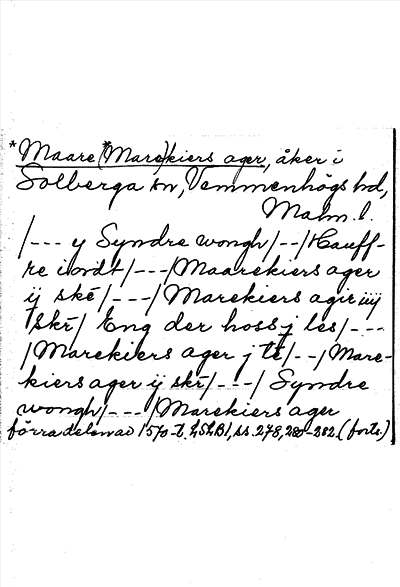 *Maare (*Mare)kiers ager, åker i
Solberga sn, Vemmenhögs hd,
Malm. l.
/--- y Syndre wongh/--/Hauff-
re iordt/---/Maarekiers ager
ij ske/---/Marekiers agir iiij
skr/ Eng der hoss j les/---
/Marekiers ager j te/--/Mare-
kiers ager ij skr/---/ Syndre
wongh/---/Marekiers ager
förra delen av 1570-t. LSLB1, ss. 278, 280-282. (forts.)